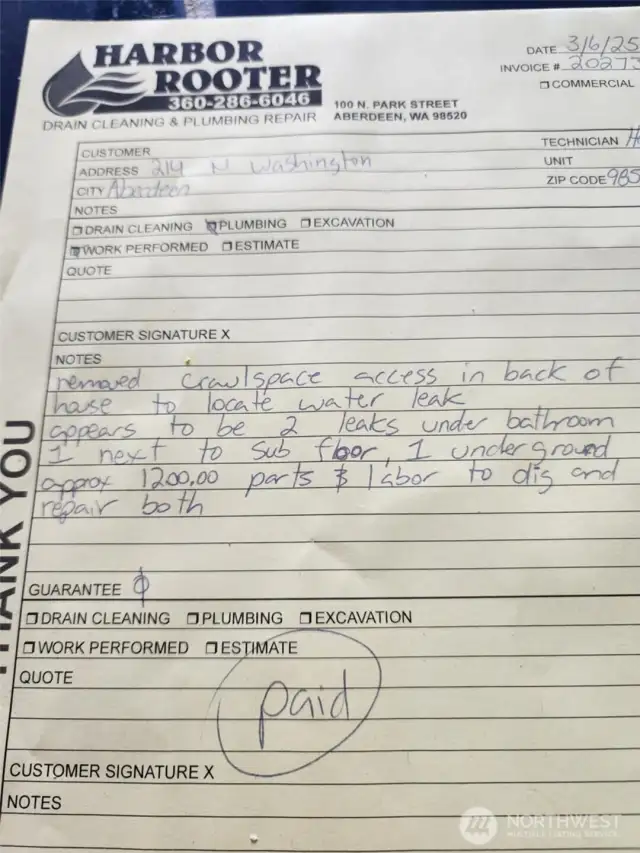 HARBOR
ROOTER
360-286-6046
DRAIN CLEANING & PLUMBING REPAIR
100 N. PARK STREET
ABERDEEN, WA 98520
DATE 3/6/25
INVOICE # 20273
☐ COMMERCIAL
CUSTOMER
TECHNICIAN
ADDRESS 214 N Washington
UNIT
CITY Aberdeen
ZIP CODE 985
NOTES
☐ DRAIN CLEANING ☑ PLUMBING ☐ EXCAVATION
☑ WORK PERFORMED ☐ ESTIMATE
QUOTE
CUSTOMER SIGNATURE X
NOTES
removed crawlspace access in back of
house to locate water leak
appears to be 2 leaks under bathroom
1 next to sub floor, 1 underground
approx 1200.00 parts & labor to dig and
repair both
THANK YOU
GUARANTEE ϕ
☐ DRAIN CLEANING ☐ PLUMBING ☐ EXCAVATION
☐ WORK PERFORMED ☐ ESTIMATE
QUOTE
paid
CUSTOMER SIGNATURE X
NOTES
NORTHWEST
MULTIPLE LISTING SERVICE